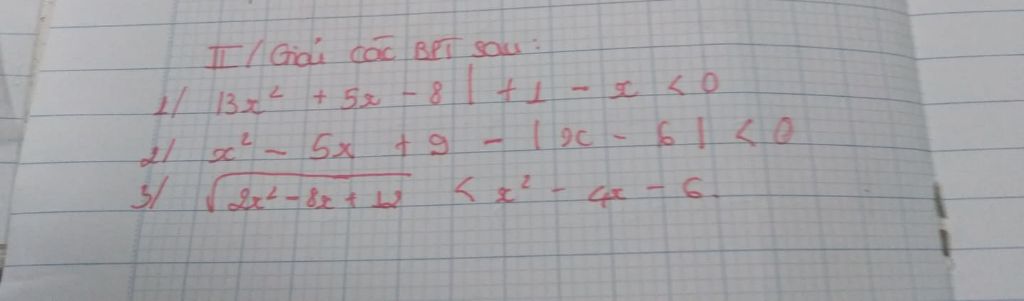 II/ Giải các BPT sau:
1/ |3x² + 5x - 8| + 1 - x < 0
2/ x² - 5x + 9 - |x - 6| < 0
3/ √(2x² - 8x + 12) < x² - 4x - 6